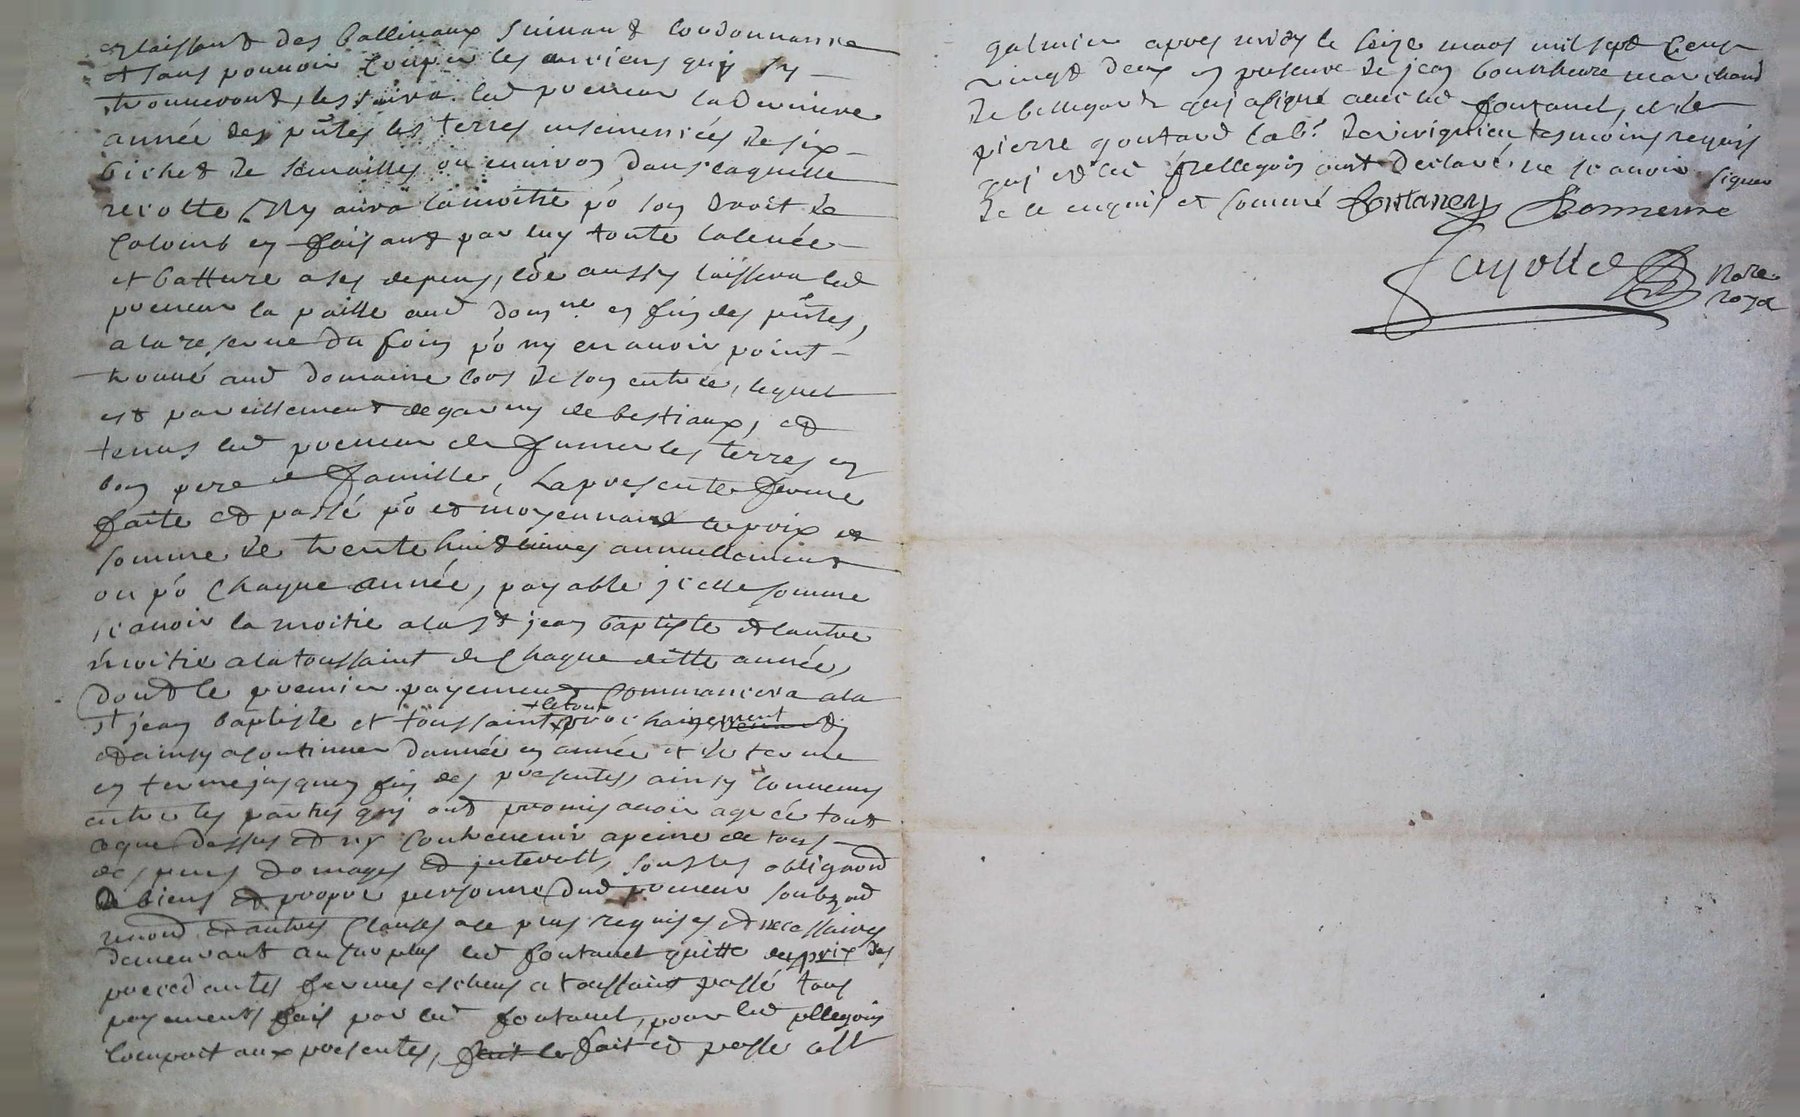 en laissant des ballivaux suivant lordonnance
et sans pouvoir couper les anciens quy sy
trouveront, les aura led preneur la derniere
année des pñtes les terres ensemencées de six
bichet de semailles ou environ, dans laquelle
recolte il ny aura la moitié pō son droit de
colomb en faisant par luy toute la levée
et batture a ses depens, lōe aussy laissera led
preneur la paille aud domne en fin des pñtes,
a la reserve du foin pō ny en avoir point
trouvé aud domaine lors de son entrée, lequel
est pareillement degarny de bestiaux, et
tenus led preneur de fumer les terres en
bon pere de famille, La presente ferme
faite et passé pō et moyennant le prix et
somme de trente huit livres annuellement
ou pō chaque année, payable jcelle somme
scavoir la moitié a la st jean baptiste et lautre
moitié a la toussaint de chaque ditte année,
dont le premier payement commancera a la
st jean baptiste et toussaint prochainement
et ainsy a continuer dannée en année et de terme
en terme jusquen fin des presentes ainsy convenus
entre les parties quj ont promis avoir agreé tout
ce que dessus et ny contrevenir a peine de tous
depens domages et jnterests, sous les obligaōns
de biens et propre personne dud preneur soubzon
renōn et autres clauses a ce plus requises et necessaires
demeurant au surplus led fontanel quitte des prix des
precedantes fermes escheus a toussaint passé tous
payements fais par led fontanel, pour led pllegrin
compris aux presentes, fait et passé a st
galmier apres midy le seize mars mil sept cent
vingt deux en presence de jean bonnherve marchand
de bellegarde quj a signé avec led fontanel, et de
pierre goutard labr de virignieu tesmoins requis
quj et led pellegrin ont declaré ne scavoir signer
de ce enquis et sommé Fontaney Bonnerve
Fayolle Nore
royal